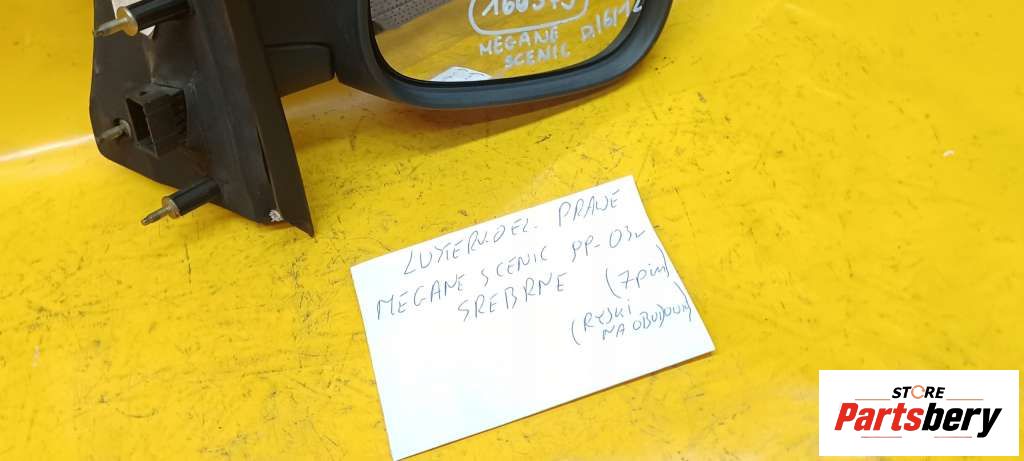 MEGANE
SCENIC D.16/12
LUSTER.DEL. PRAWE
MEGANE SCENIC PP-03r
SREBRNE (7pin)
(RYSKI
NA OBUDOWIE)
STORE
Partsbery